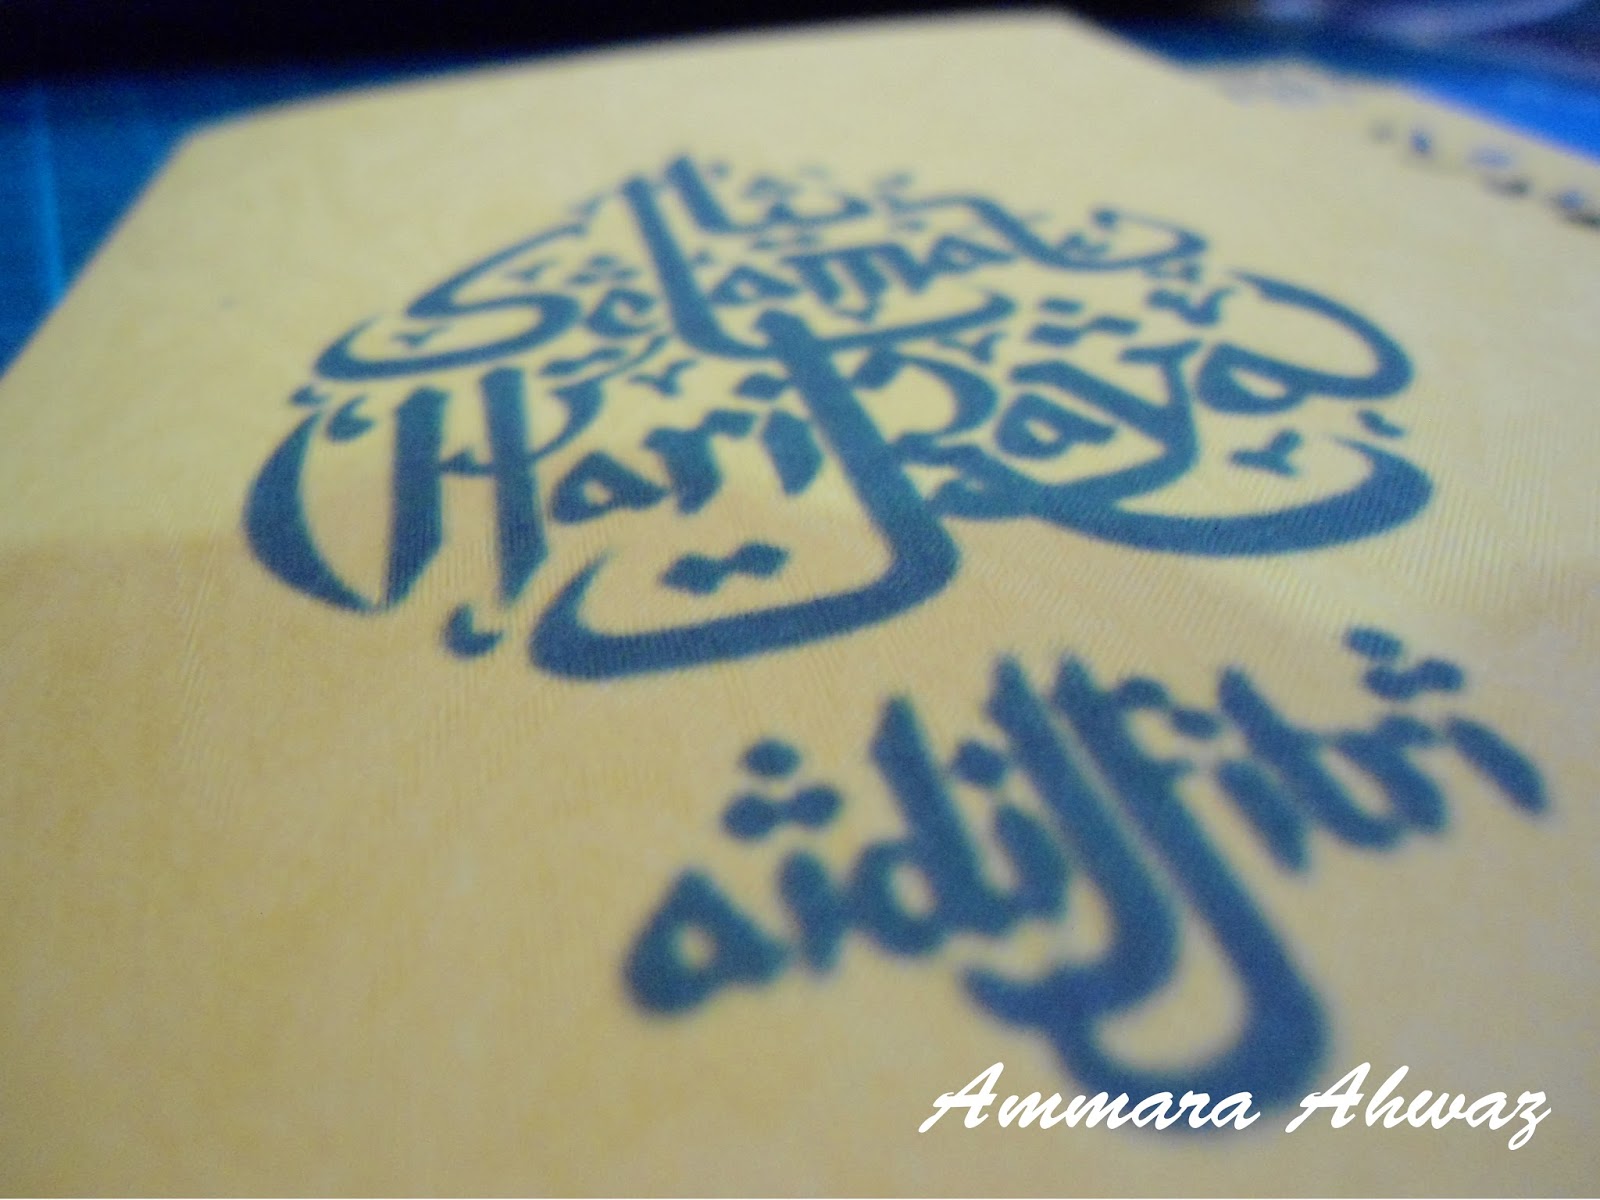 Selamat
Hari Raya
aidilfitri
Ammara Ahwaz